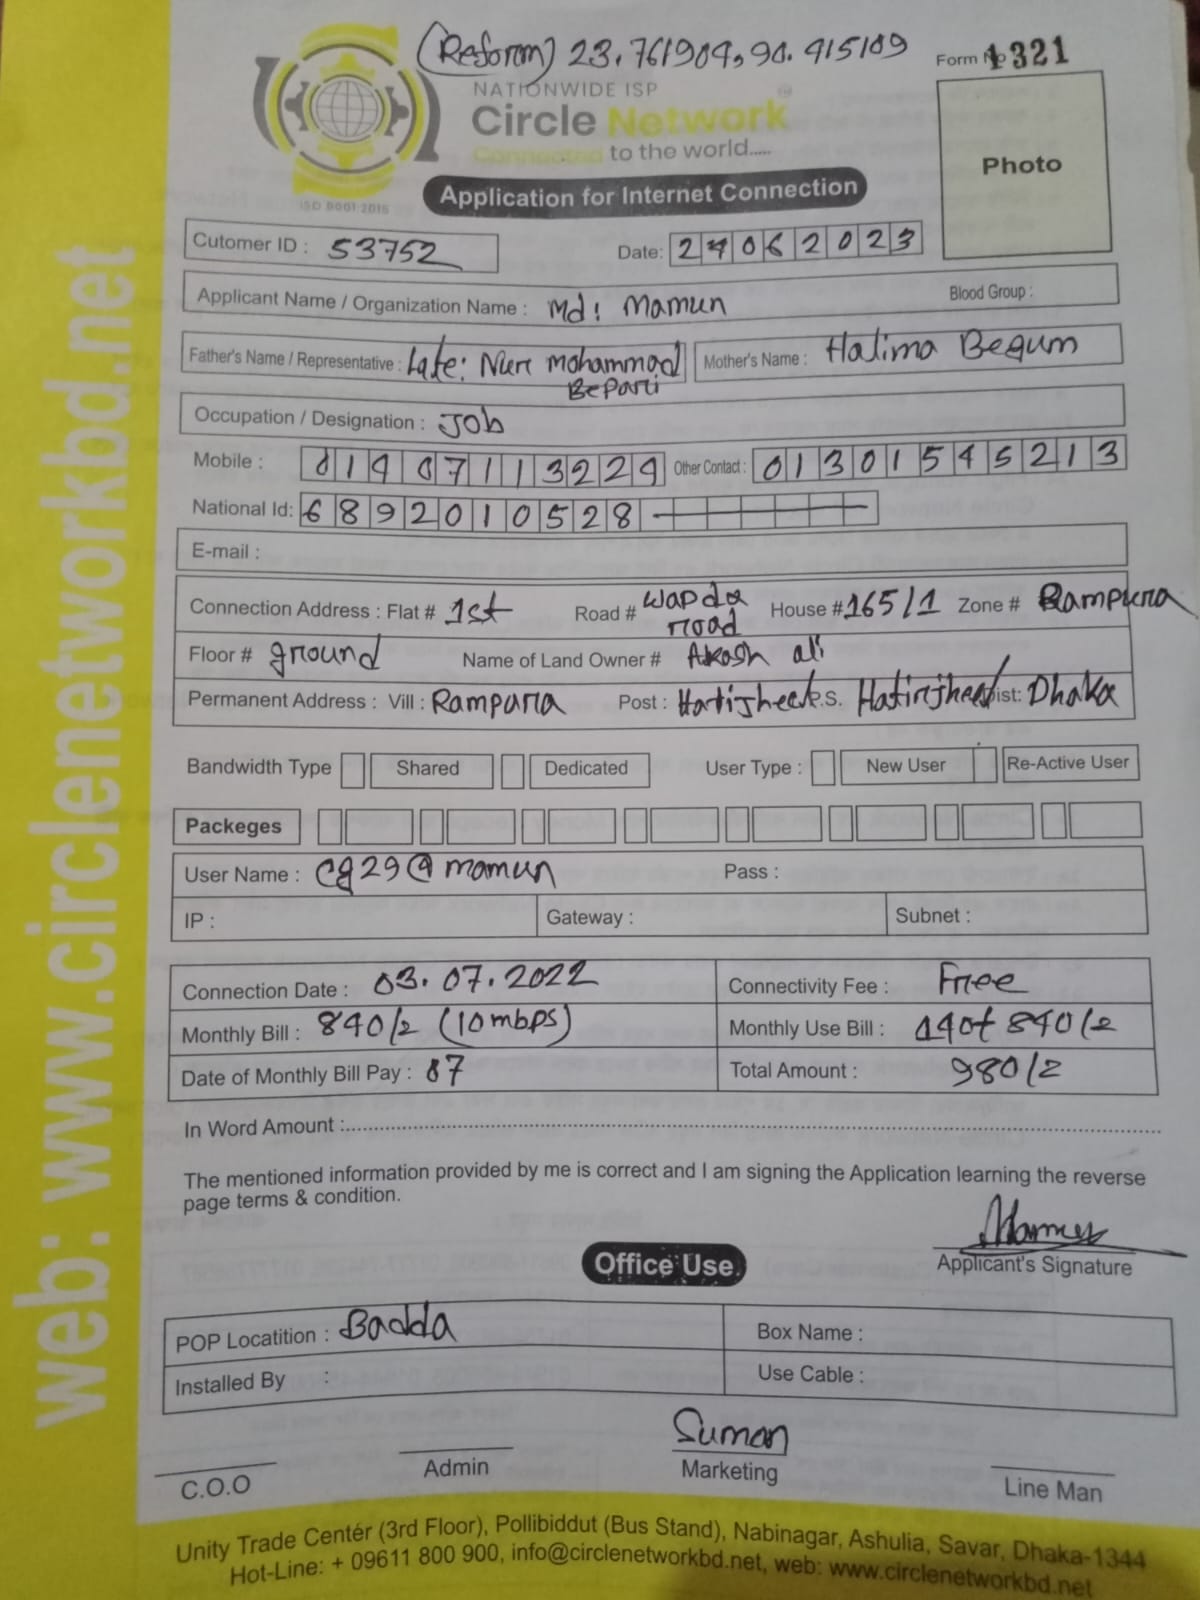 (Reform) 23.761904, 90.415109
Form No 1321
NATIONWIDE ISP
Circle Network
Connected to the world.....
ISO 9001:2015
Photo
Application for Internet Connection
Cutomer ID : 53752
Date: 24062023
Applicant Name / Organization Name : Md: Mamun
Blood Group :
Father's Name / Representative : Late: Nur mohammad Bepari
Mother's Name : Halima Begum
Occupation / Designation : Job
Mobile : 01407113229 Other Contact : 01301545213
National Id: 6892010528
E-mail :
Connection Address : Flat # 1st Road # Wapda road House # 165/1 Zone # Rampura
Floor # ground Name of Land Owner # Akash ali
Permanent Address : Vill : Rampura Post : Hatijheel P.S. Hatirjheel Dist: Dhaka
Bandwidth Type Shared Dedicated User Type : New User Re-Active User
Packeges
User Name : cg29@mamun Pass :
IP : Gateway : Subnet :
Connection Date : 03.07.2022 Connectivity Fee : Free
Monthly Bill : 840/= (10mbps) Monthly Use Bill : 140+ 840/=
Date of Monthly Bill Pay : 07 Total Amount : 980/=
In Word Amount :
The mentioned information provided by me is correct and I am signing the Application learning the reverse
page terms & condition.
Mamun
Applicant's Signature
Office Use
POP Locatition : Badda Box Name :
Installed By : Use Cable :
Suman
C.O.O Admin Marketing Line Man
Unity Trade Center (3rd Floor), Pollibiddut (Bus Stand), Nabinagar, Ashulia, Savar, Dhaka-1344
Hot-Line: + 09611 800 900, info@circlenetworkbd.net, web: www.circlenetworkbd.net
web: www.circlenetworkbd.net